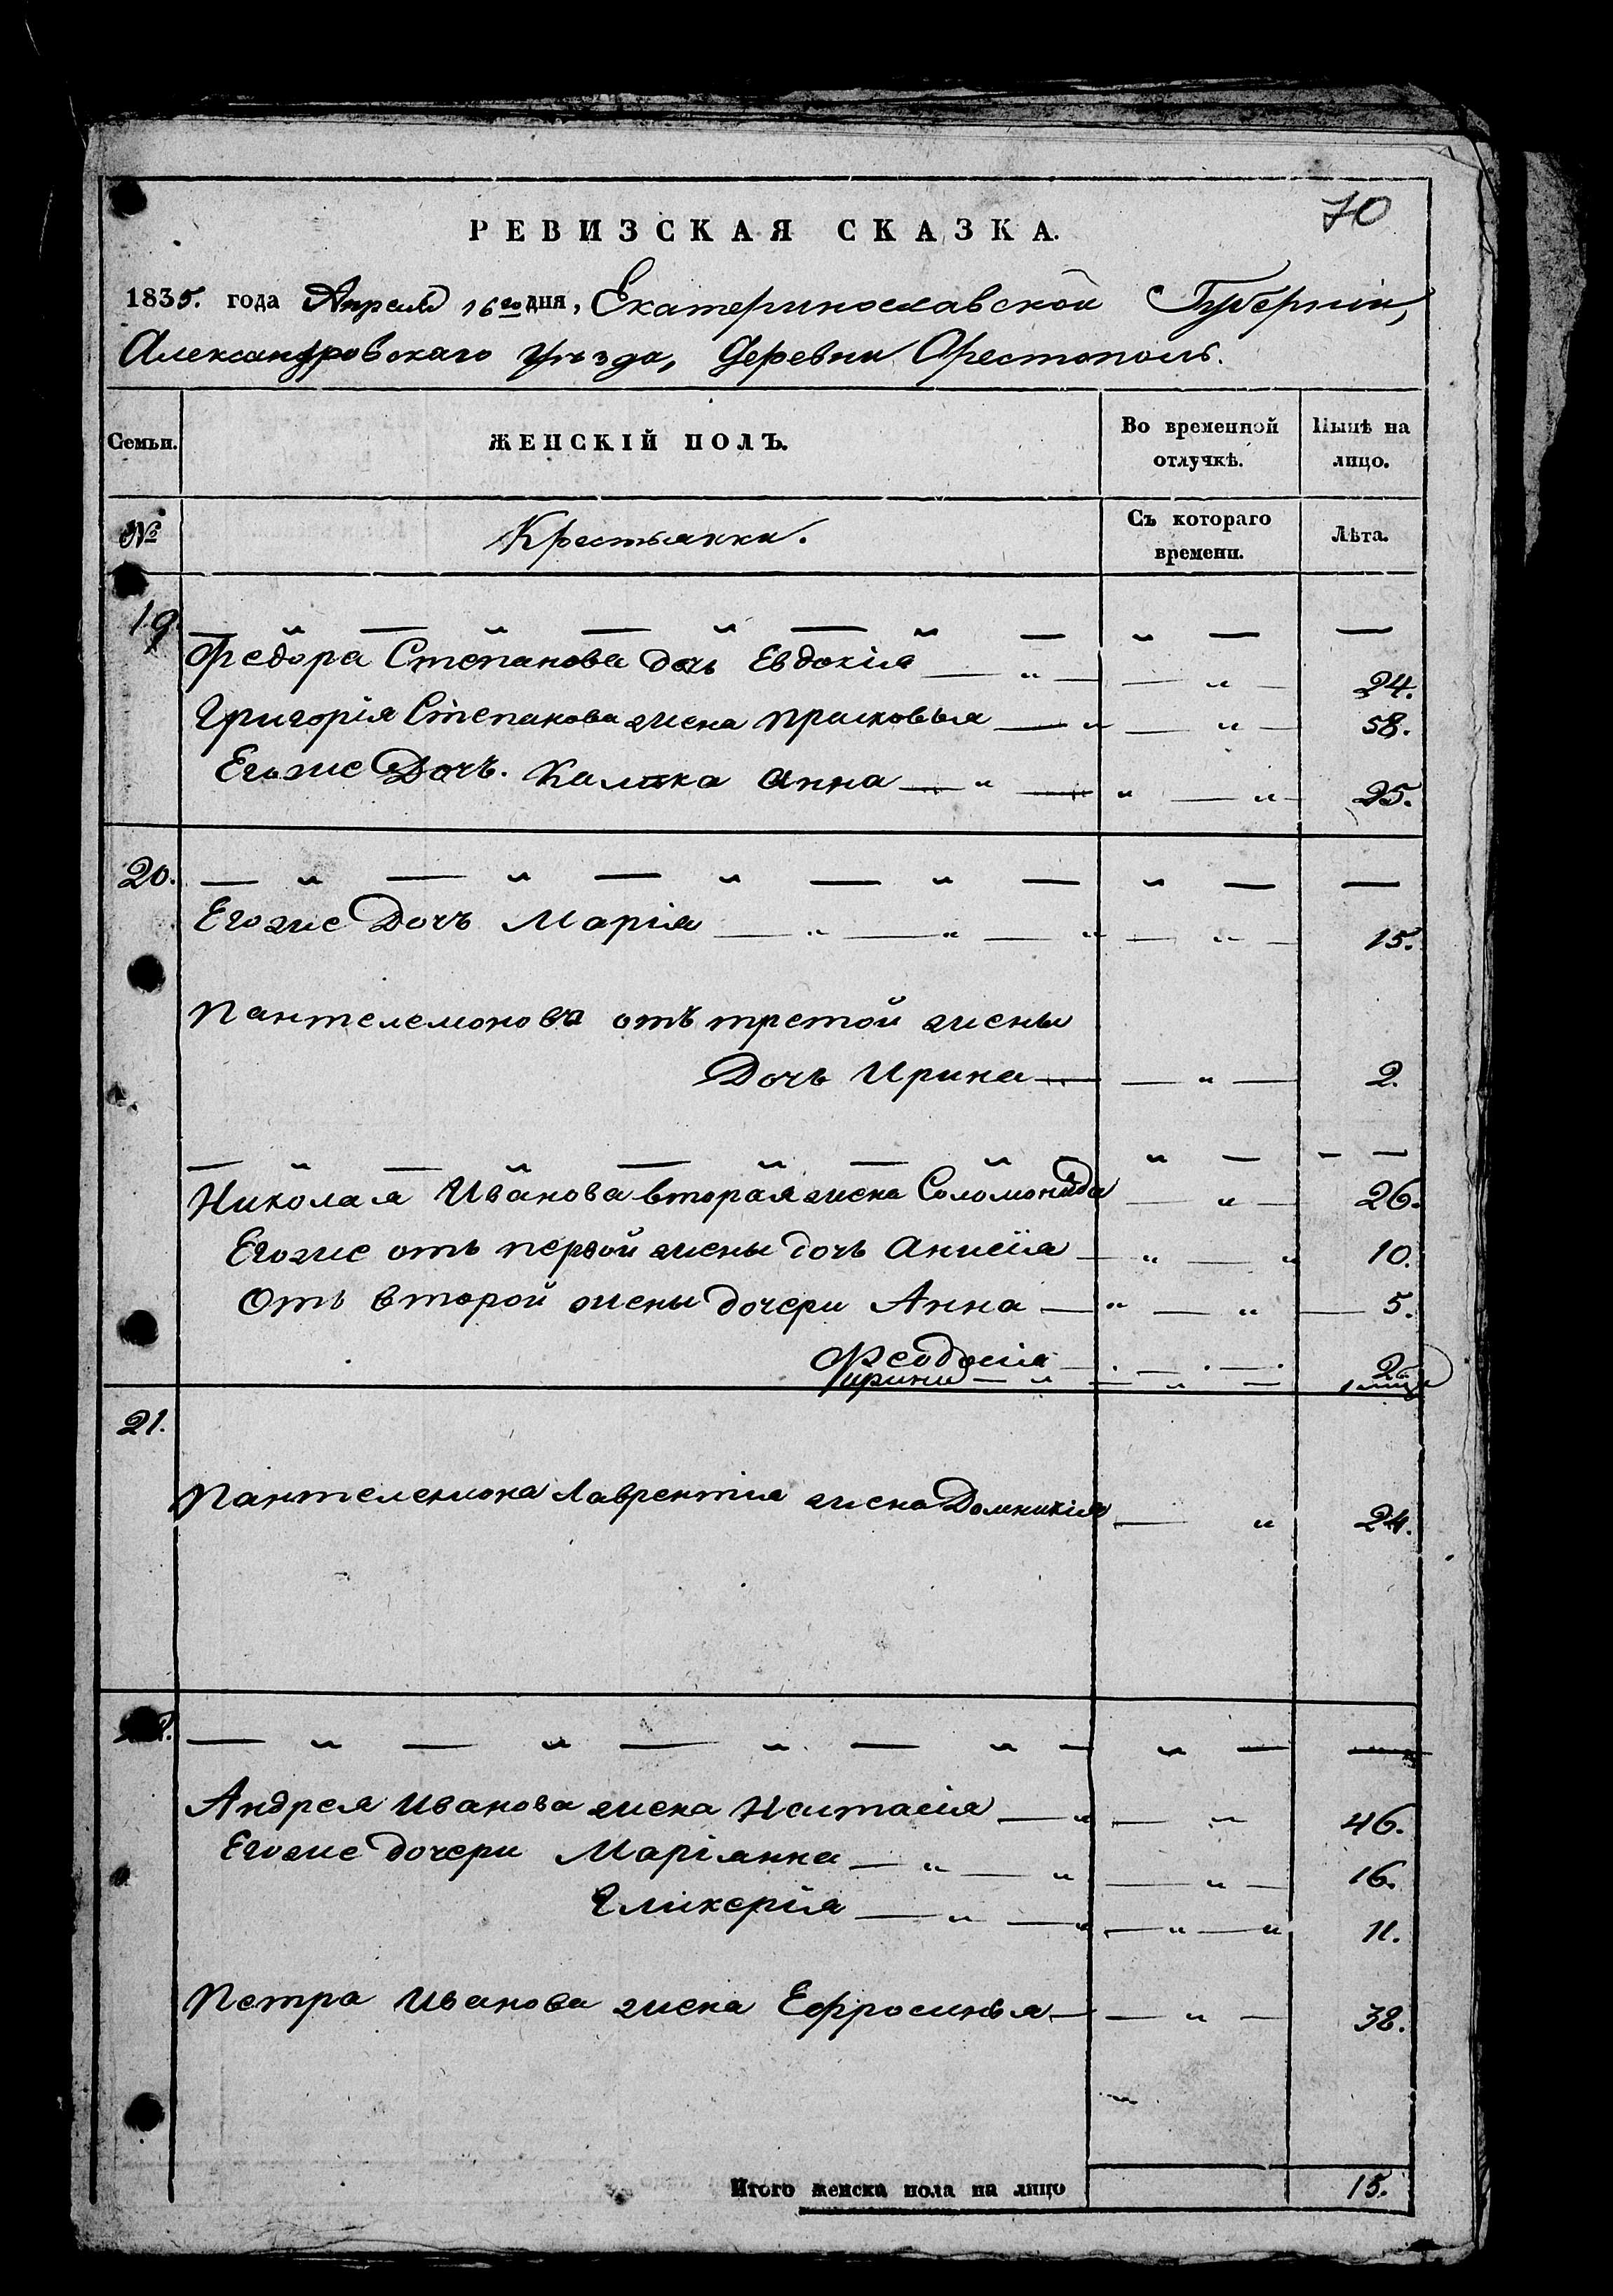 70
РЕВИЗСКАЯ СКАЗКА.
1835. года Апреля 16го дня, Екатеринославской Губернiи,
Александровскаго уѣзда, Деревни Орестополь.
Семьи.
ЖЕНСКІЙ ПОЛЪ.
Во временной отлучкѣ.
Нынѣ на лицо.
№
Крестьянки.
Съ котораго времени.
Лѣта.
19.
Федора Степанова дочь Евдокiя 24.
Григорiя Степанова жена прасковья 58.
Егоже Дочь. Калѣка Анна 25.
20.
Егоже Дочь Марiя 15.
Пантелемонова отъ третой жены
Дочь Ирина 2.
Николая Иванова вторая жена Соломонида 26.
Егоже отъ первой жены дочь Анисiя 10.
Отъ второй жены дочери Анна 5.
Феодосiя 2
Ирина
21.
Пантелемона Лаврентiя жена Домникiя 24.
Андрея Иванова жена Настасiя 46.
Егоже дочери Марiянна 16.
Гликерiя 11.
Петра Иванова жена Ефросинья 38.
Итого женска пола на лицо 15.